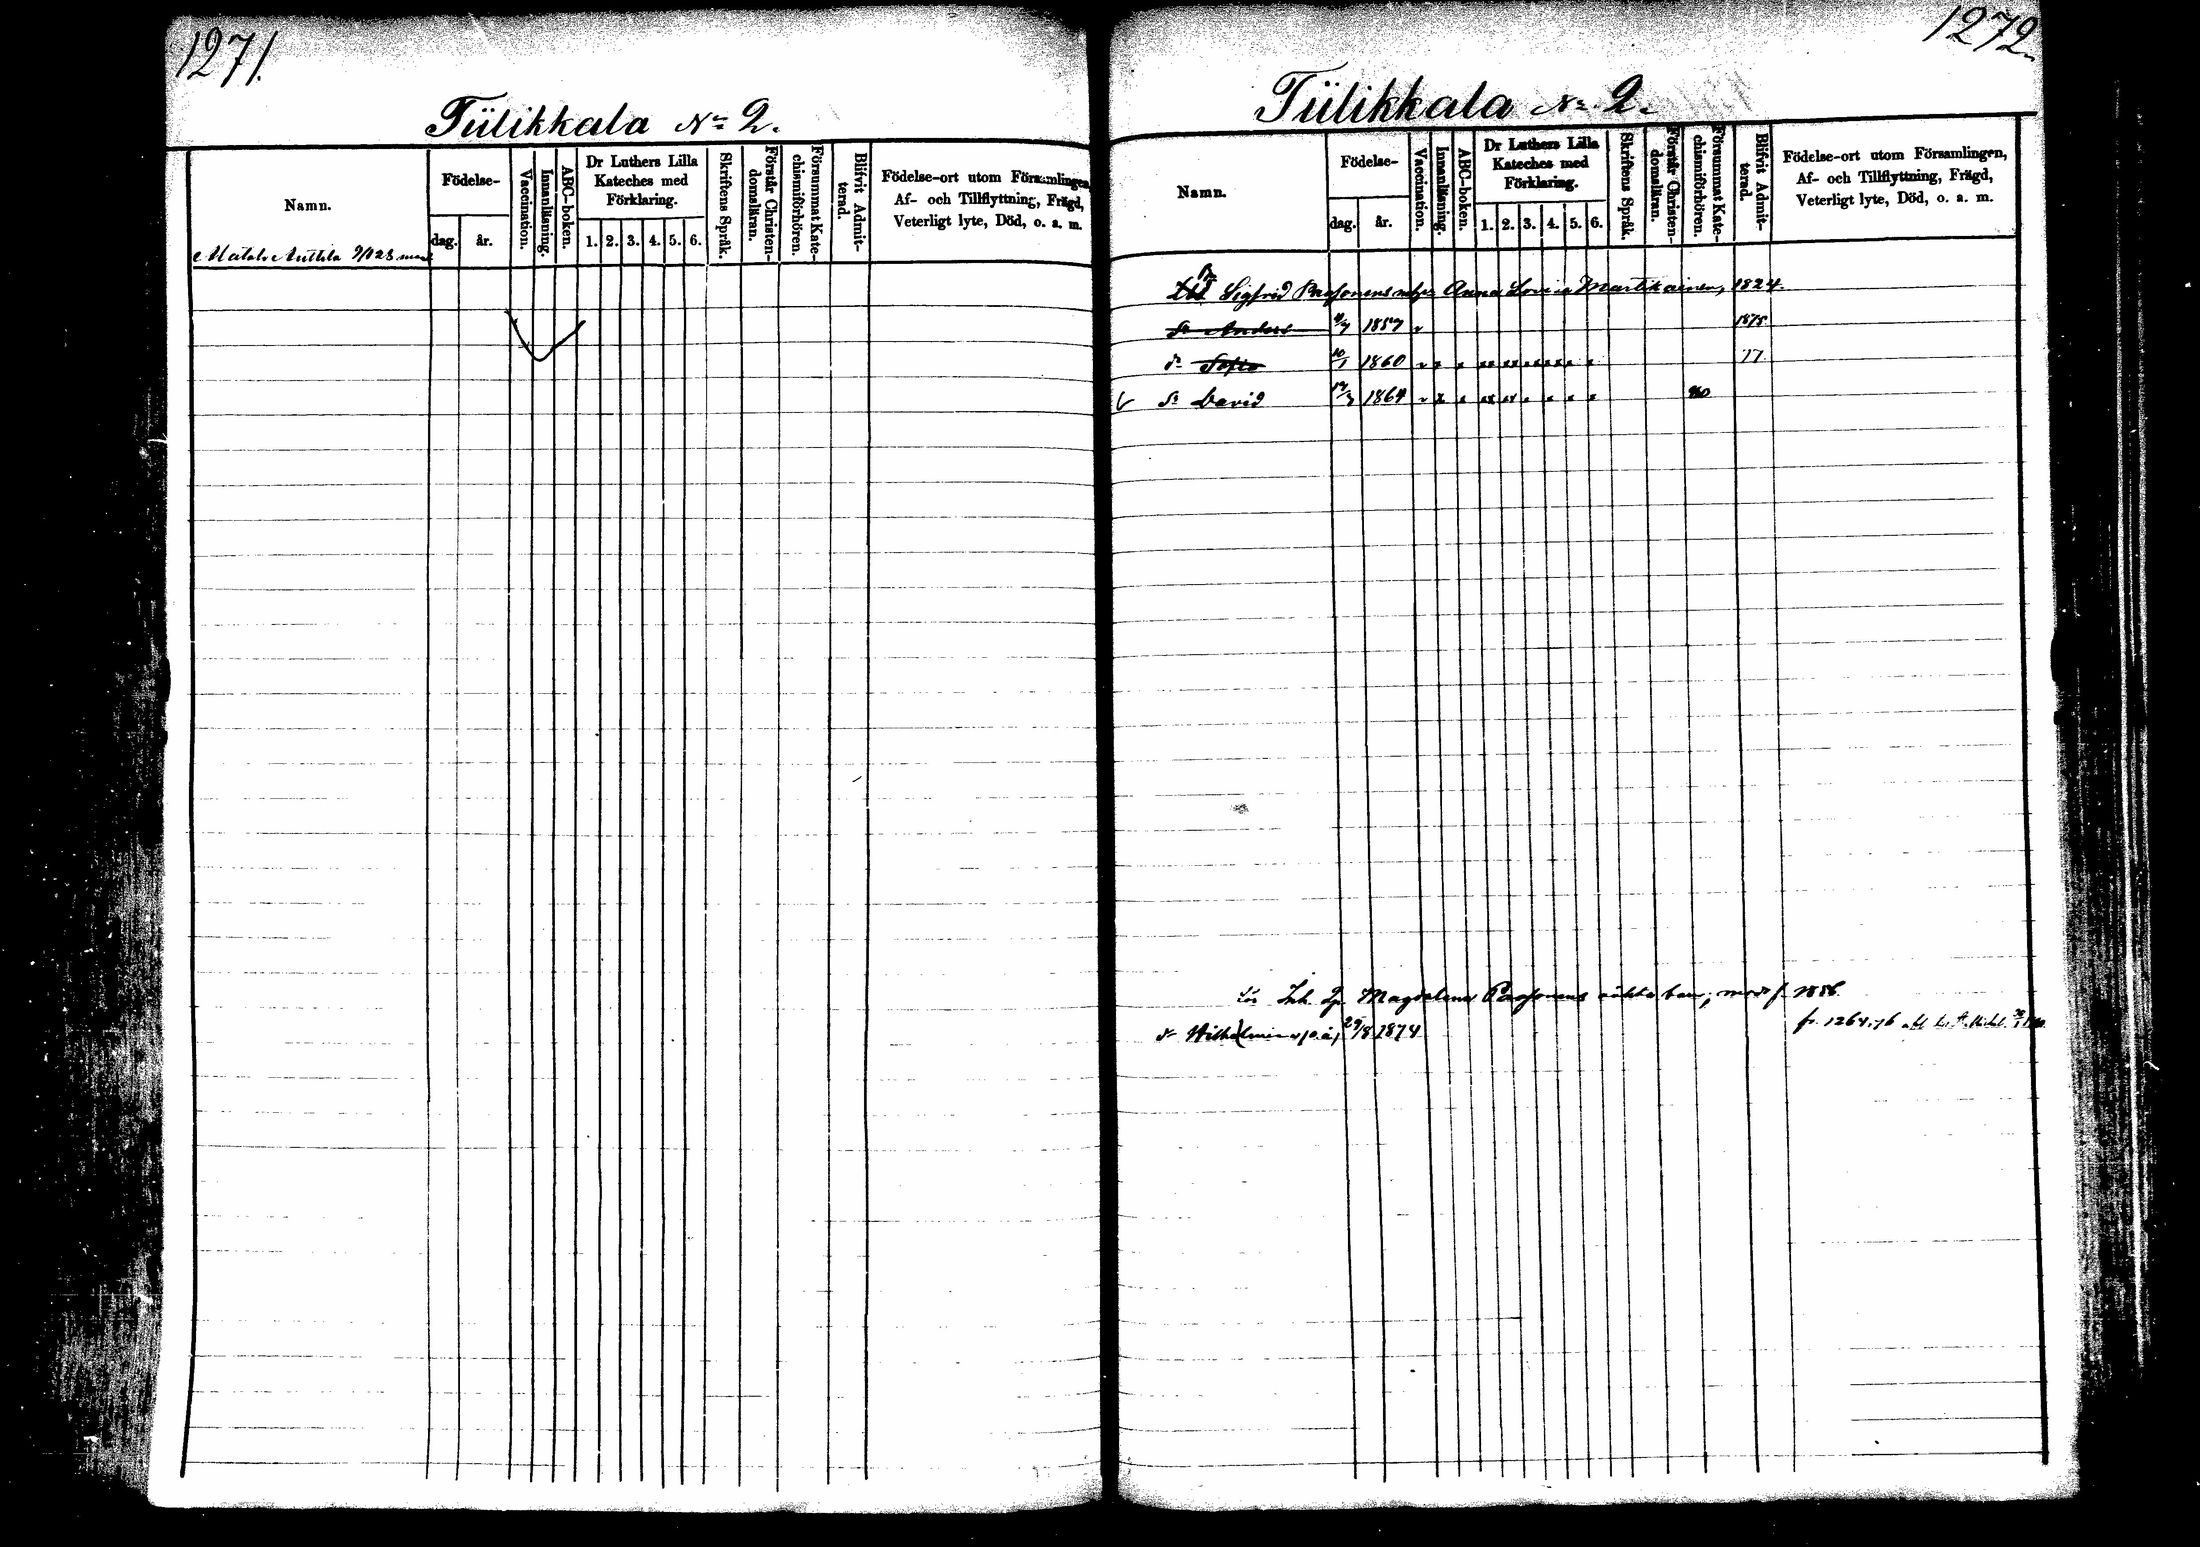 1271.
Tiilikkala No 2.
Namn.
Födelse-
dag.
år.
Vaccination.
Innanläsning.
ABC-boken.
Dr Luthers Lilla
Kateches med
Förklaring.
1. 2. 3. 4. 5. 6.
Skriftens Språk.
Förstår Christen-
domsläran.
Försummat Kate-
chismiförhören.
Blifvit Admit-
terad.
Födelse-ort utom Församlingen,
Af- och Tillflyttning, Frägd,
Veterligt lyte, Död, o. a. m.
1272.
Tiilikkala No 2.
Namn.
Födelse-
dag.
år.
Vaccination.
Innanläsning.
ABC-boken.
Dr Luthers Lilla
Kateches med
Förklaring.
1. 2. 3. 4. 5. 6.
Skriftens Språk.
Förstår Christen-
domsläran.
Försummat Kate-
chismiförhören.
Blifvit Admit-
terad.
Födelse-ort utom Församlingen,
Af- och Tillflyttning, Frägd,
Veterligt lyte, Död, o. a. m.
Sigfrid Anna Lovisa Martikainen, 1824.
Anders 1857 1875
Sofia 1860 77
David 1864
Magdalena Paajonens 1856
29/8 1874